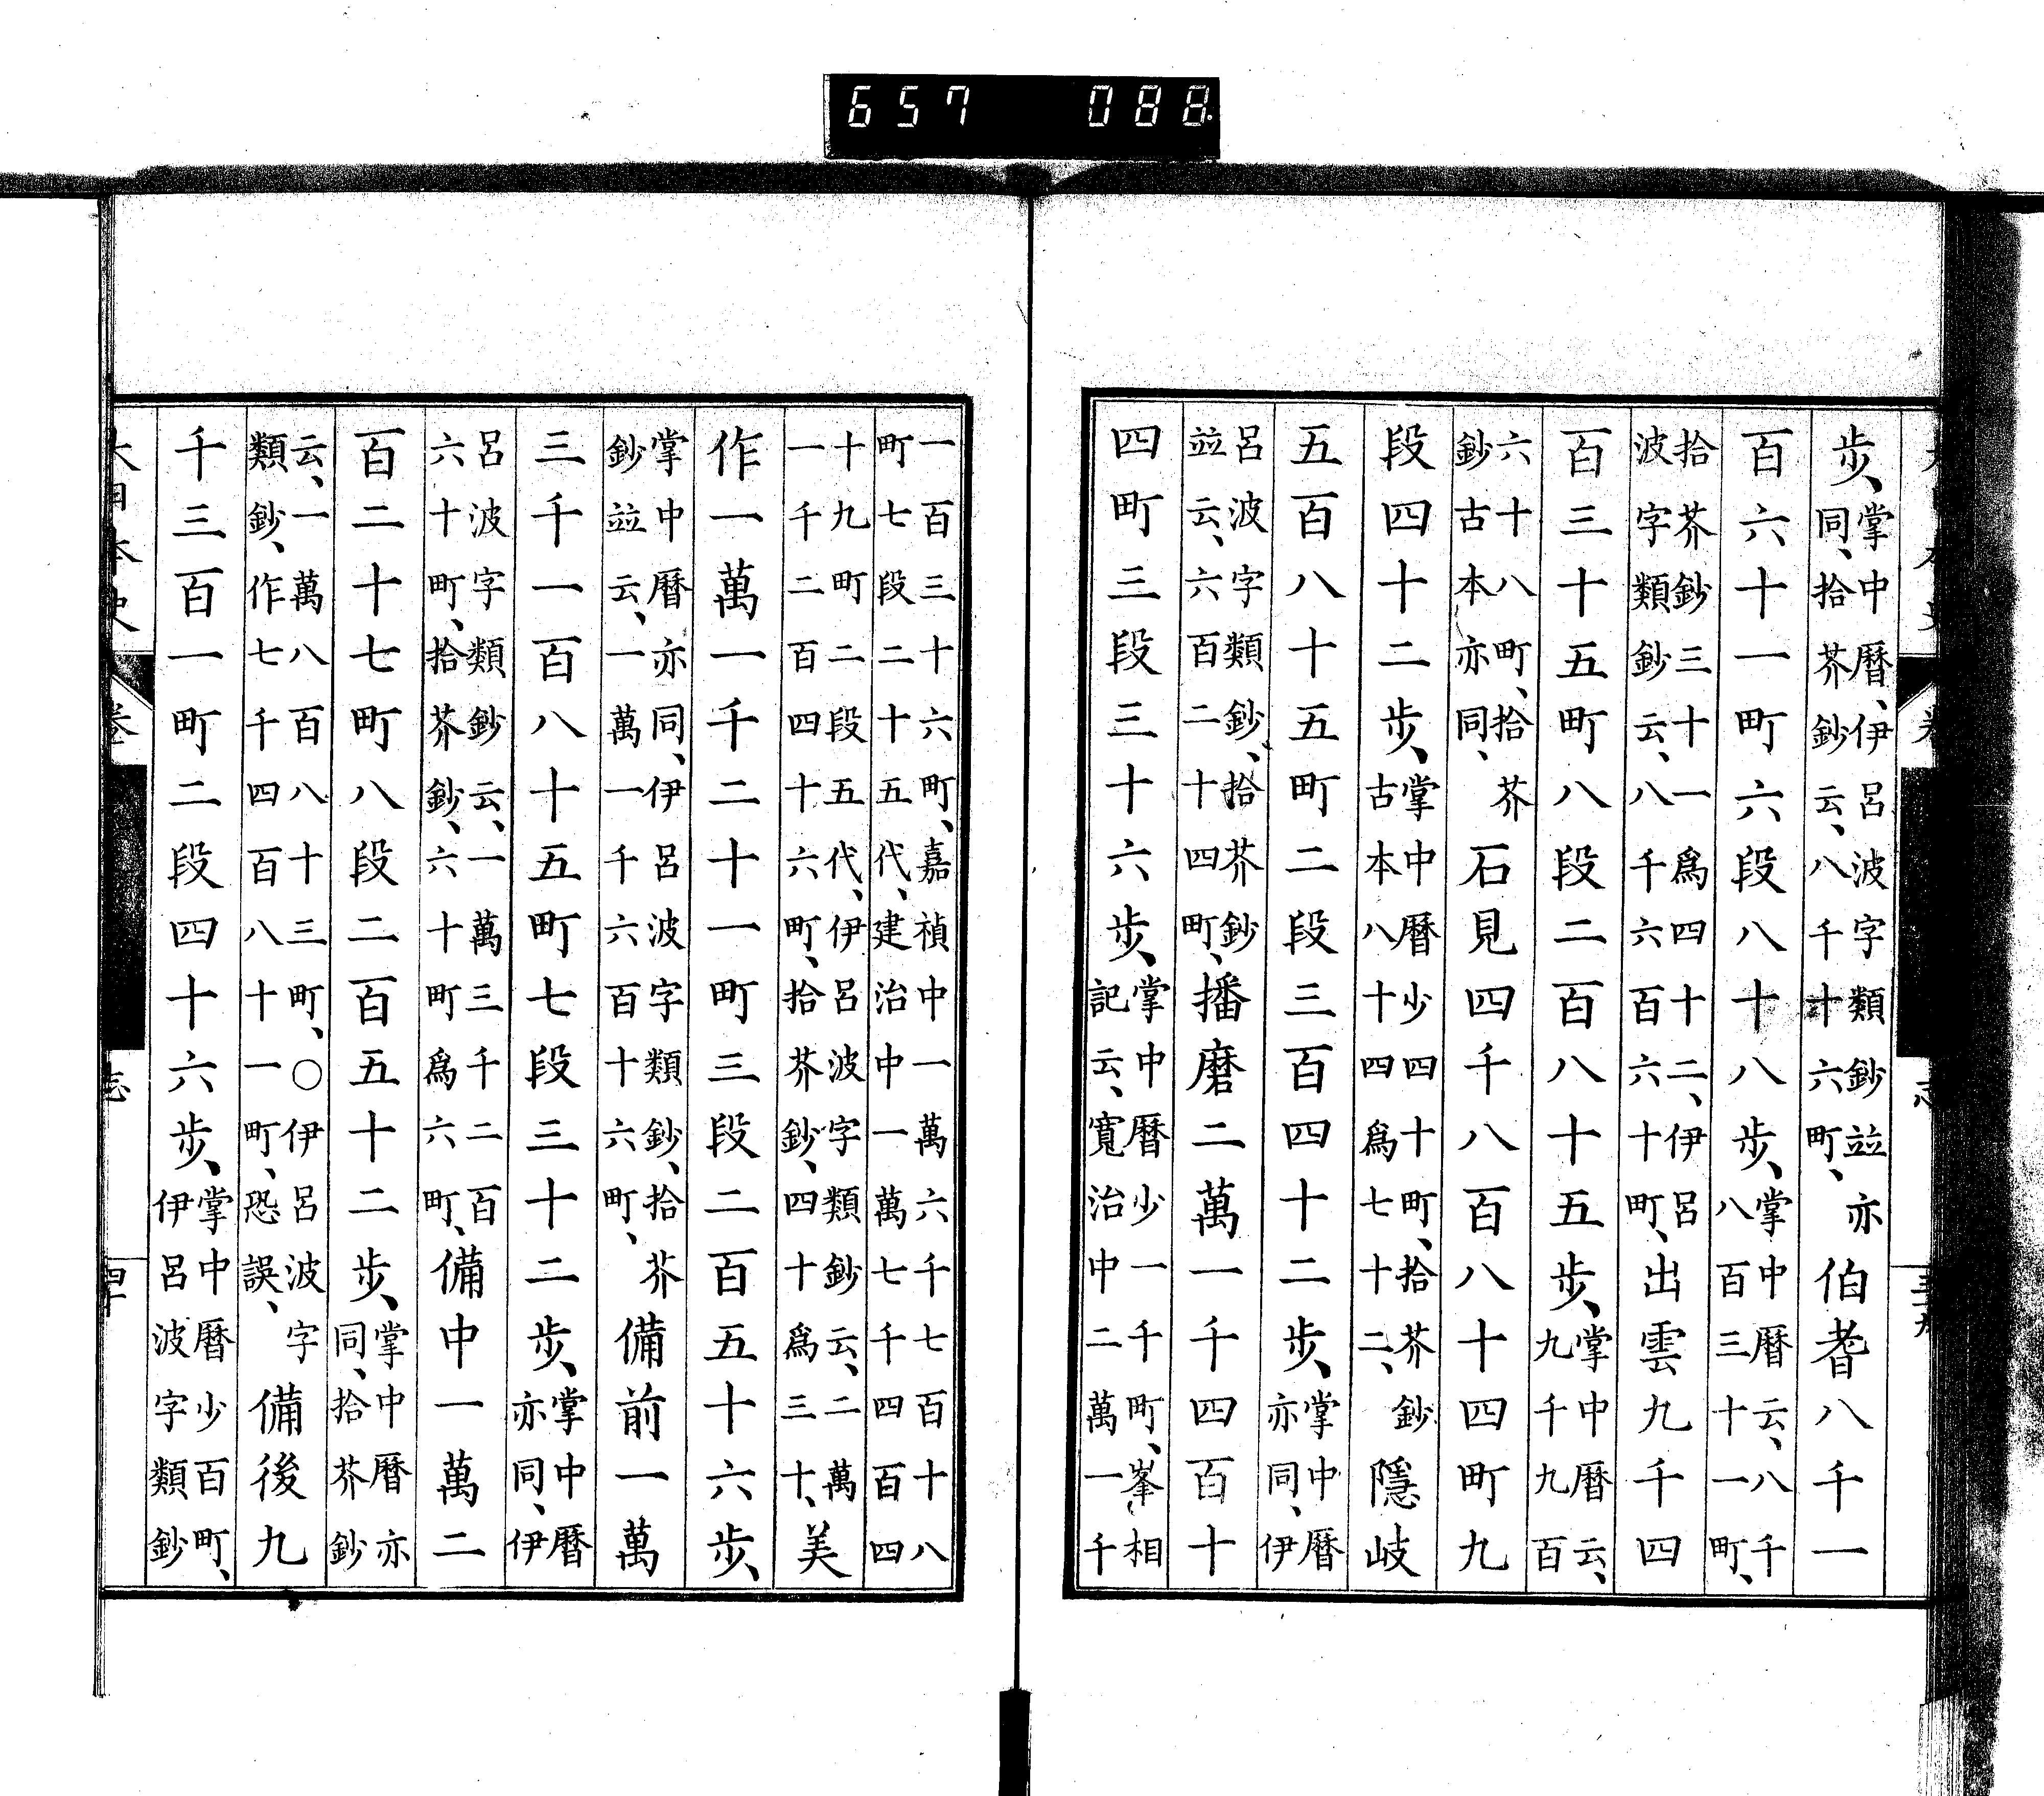 657 088
步、掌中曆、伊呂波字類鈔竝亦同、拾芥鈔云、八千十六町、伯耆八千一
百六十一町六段八十八步、掌中曆云、八千八百三十一町、
拾芥鈔三十一爲四十二、伊呂波字類鈔云、八千六百六十町、出雲九千四
百三十五町八段二百八十五步、掌中曆云、九千九百
六十八町、拾芥鈔古本亦同、石見四千八百八十四町九
段四十二步、掌中曆少四十町、拾芥鈔古本八十四爲七十二、隱岐
五百八十五町二段三百四十二步、掌中曆亦同、伊
呂波字類鈔、拾芥鈔竝云、六百二十四町、播磨二萬一千四百十
四町三段三十六步、掌中曆少一千町、峯相記云、寬治中二萬一千
一百三十六町、嘉禎中一萬六千七百十八町七段二十五代、建治中一萬七千四百四
十九町二段五代、伊呂波字類鈔云、二萬一千二百四十六町、拾芥鈔、四十爲三十、美
作一萬一千二十一町三段二百五十六步、
掌中曆亦同、伊呂波字類鈔、拾芥鈔竝云、一萬一千六百十六町、備前一萬
三千一百八十五町七段三十二步、掌中曆亦同、伊
呂波字類鈔云、一萬三千二百六十町、拾芥鈔、六十町爲六町、備中一萬二
百二十七町八段二百五十二步、掌中曆亦同、拾芥鈔
云、一萬八百八十三町、○伊呂波字類鈔、作七千四百八十一町、恐誤、備後九
千三百一町二段四十六步、掌中曆少百町、伊呂波字類鈔
大日本史 卷 志